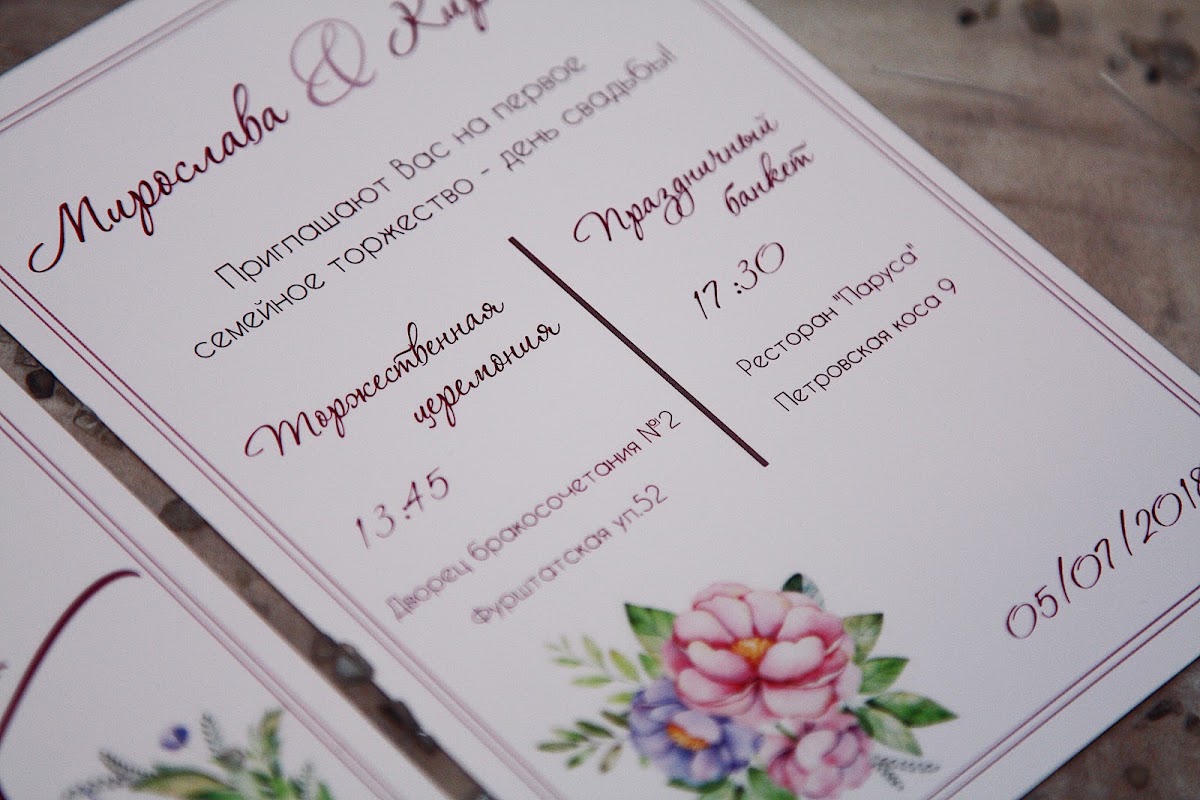 Мирослава & Кир
Приглашают Вас на первое
семейное торжество - день свадьбы!
Торжественная
церемония
13:45
Дворец бракосочетания №2
Фурштатская ул.52
Праздничный
банкет
17:30
Ресторан "Паруса"
Петровская коса 9
05/07/2018